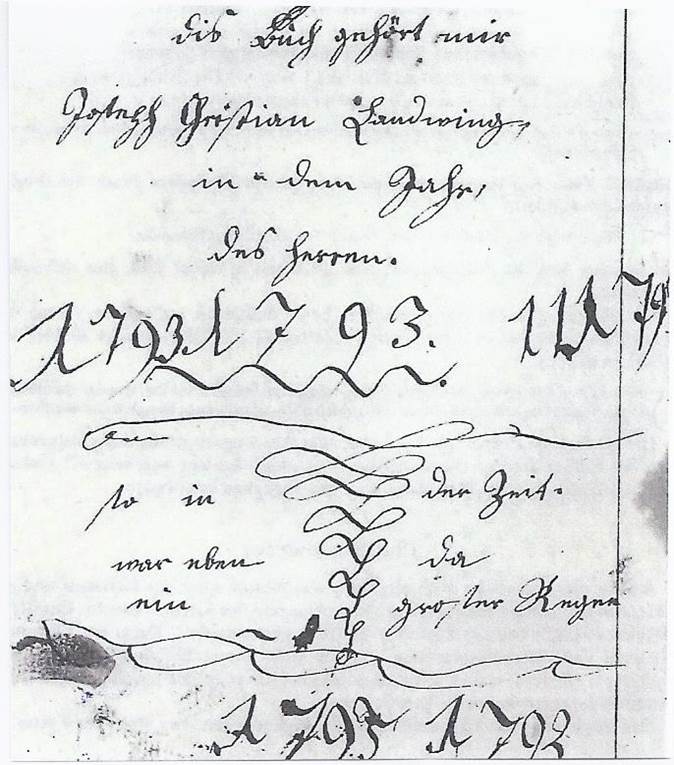 dis Buch gehört mir
Joseph Christian Landwing,
in dem Jahr,
des herren.
1793 1793. 111 79
so in der Zeit.
war eben da
ein groster Regen
1793 1792